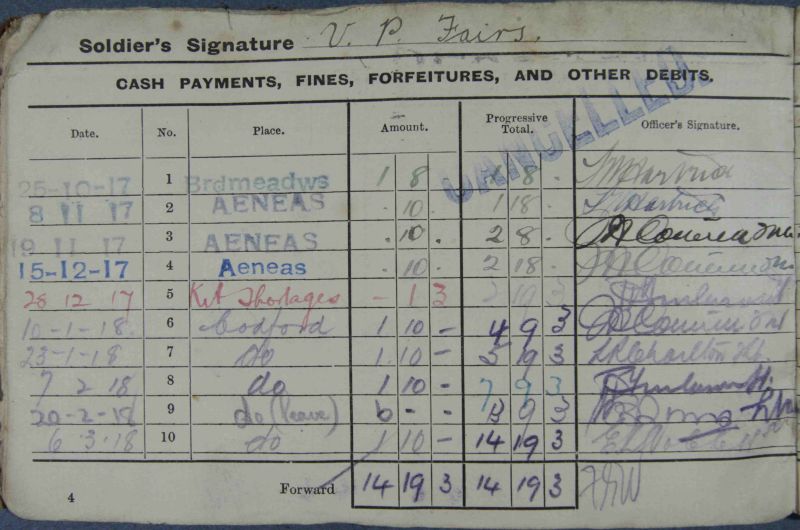 Soldier's Signature V. P. Fairs.
CASH PAYMENTS, FINES, FORFEITURES, AND OTHER DEBITS.
CANCELLED.
Date. No. Place. Amount. Progressive Total. Officer's Signature.
25-10-17 1 Brdmeadws 1 8 . 1 8 .
8 11 17 2 AENEAS . 10 . 1 18 .
19 11 17 3 AENEAS . 10 . 2 8 .
15-12-17 4 Aeneas . 10 . 2 18 .
28 12 17 5 Kit Shortages - 1 3 2 19 3
10-1-18. 6 Codford 1 10 - 4 9 3
23-1-18 7 do 1 10 - 5 19 3
7 2 18 8 do 1 10 - 7 9 3
20-2-18 9 do (leave) 6 - - 9 3
6 3 18 10 do 1 10 - 14 19 3
Forward 14 19 3 14 19 3
4